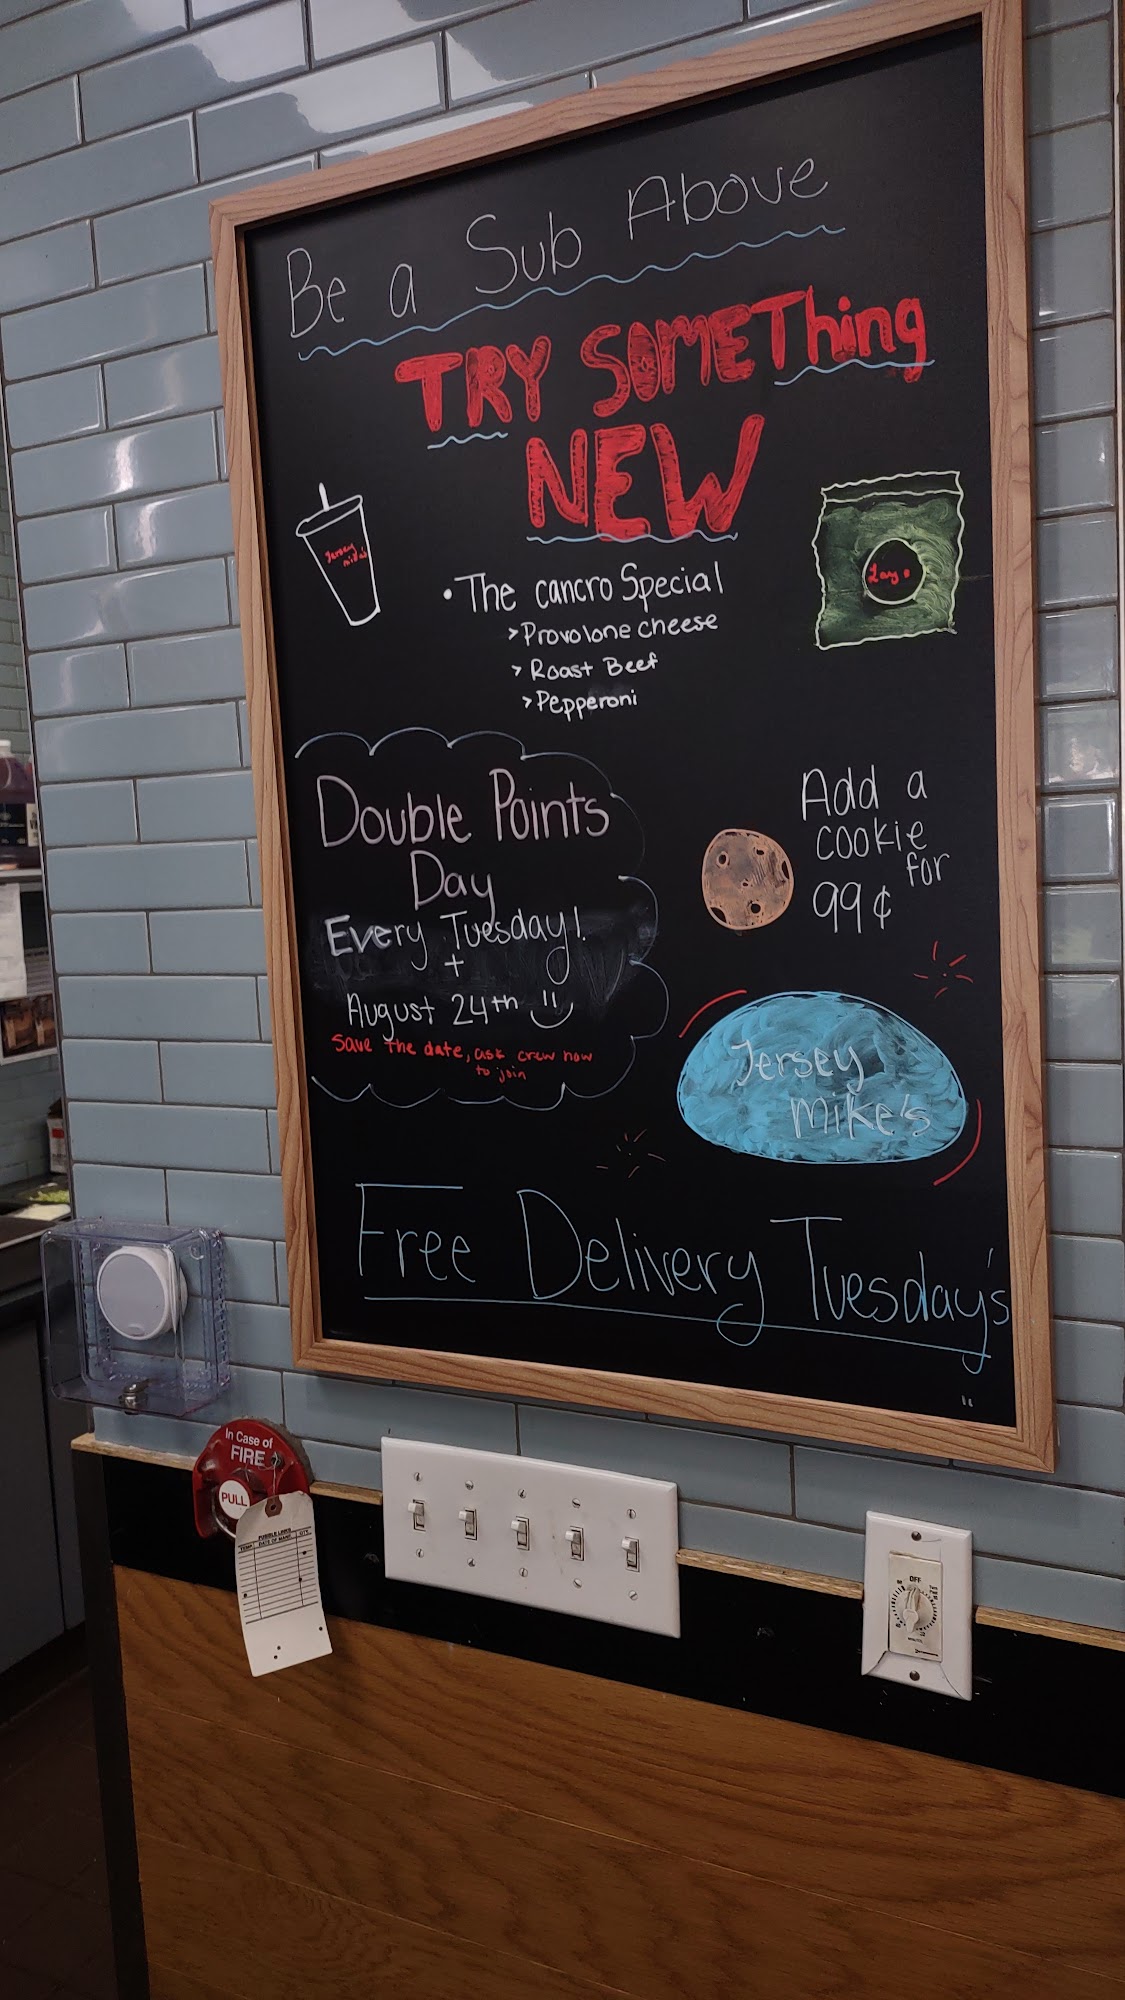 Be a Sub Above
TRY SOMEThing
NEW
Jersey
mike's
Lay's
• The cancro Special
> Provolone cheese
> Roast Beef
> Pepperoni
Double Points
Day
Every Tuesday!
+
August 24th
Save the date, ask crew how
to join
Add a
cookie
for
99¢
Jersey
Mike's
Free Delivery Tuesday's
In Case of
FIRE
PULL
FUSIBLE LINKS
TEMP. DATE OF MANF. QTY.
OFF